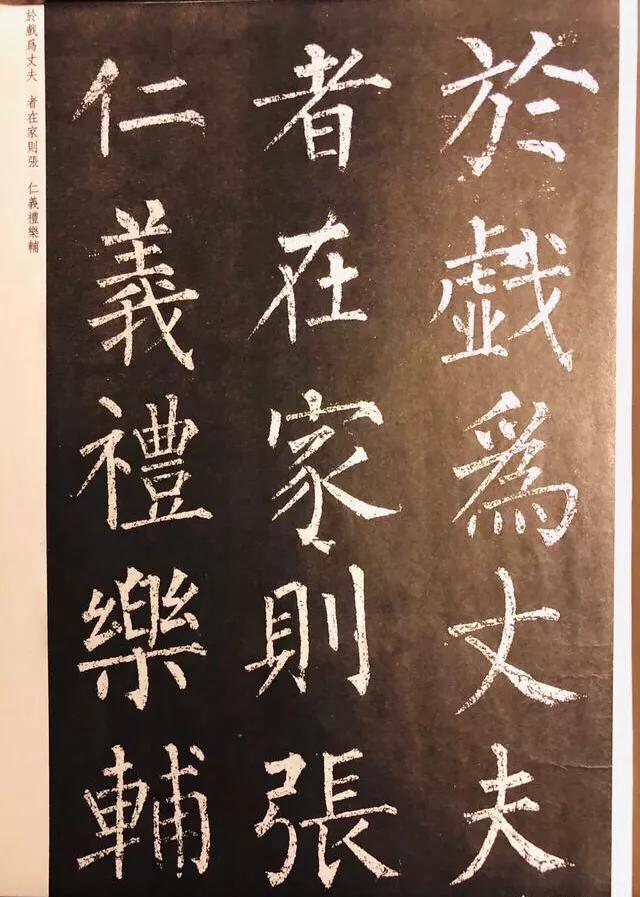 於戱爲丈夫
者在家則張
仁義禮樂輔
於戱爲丈夫　者在家則張　仁義禮樂輔